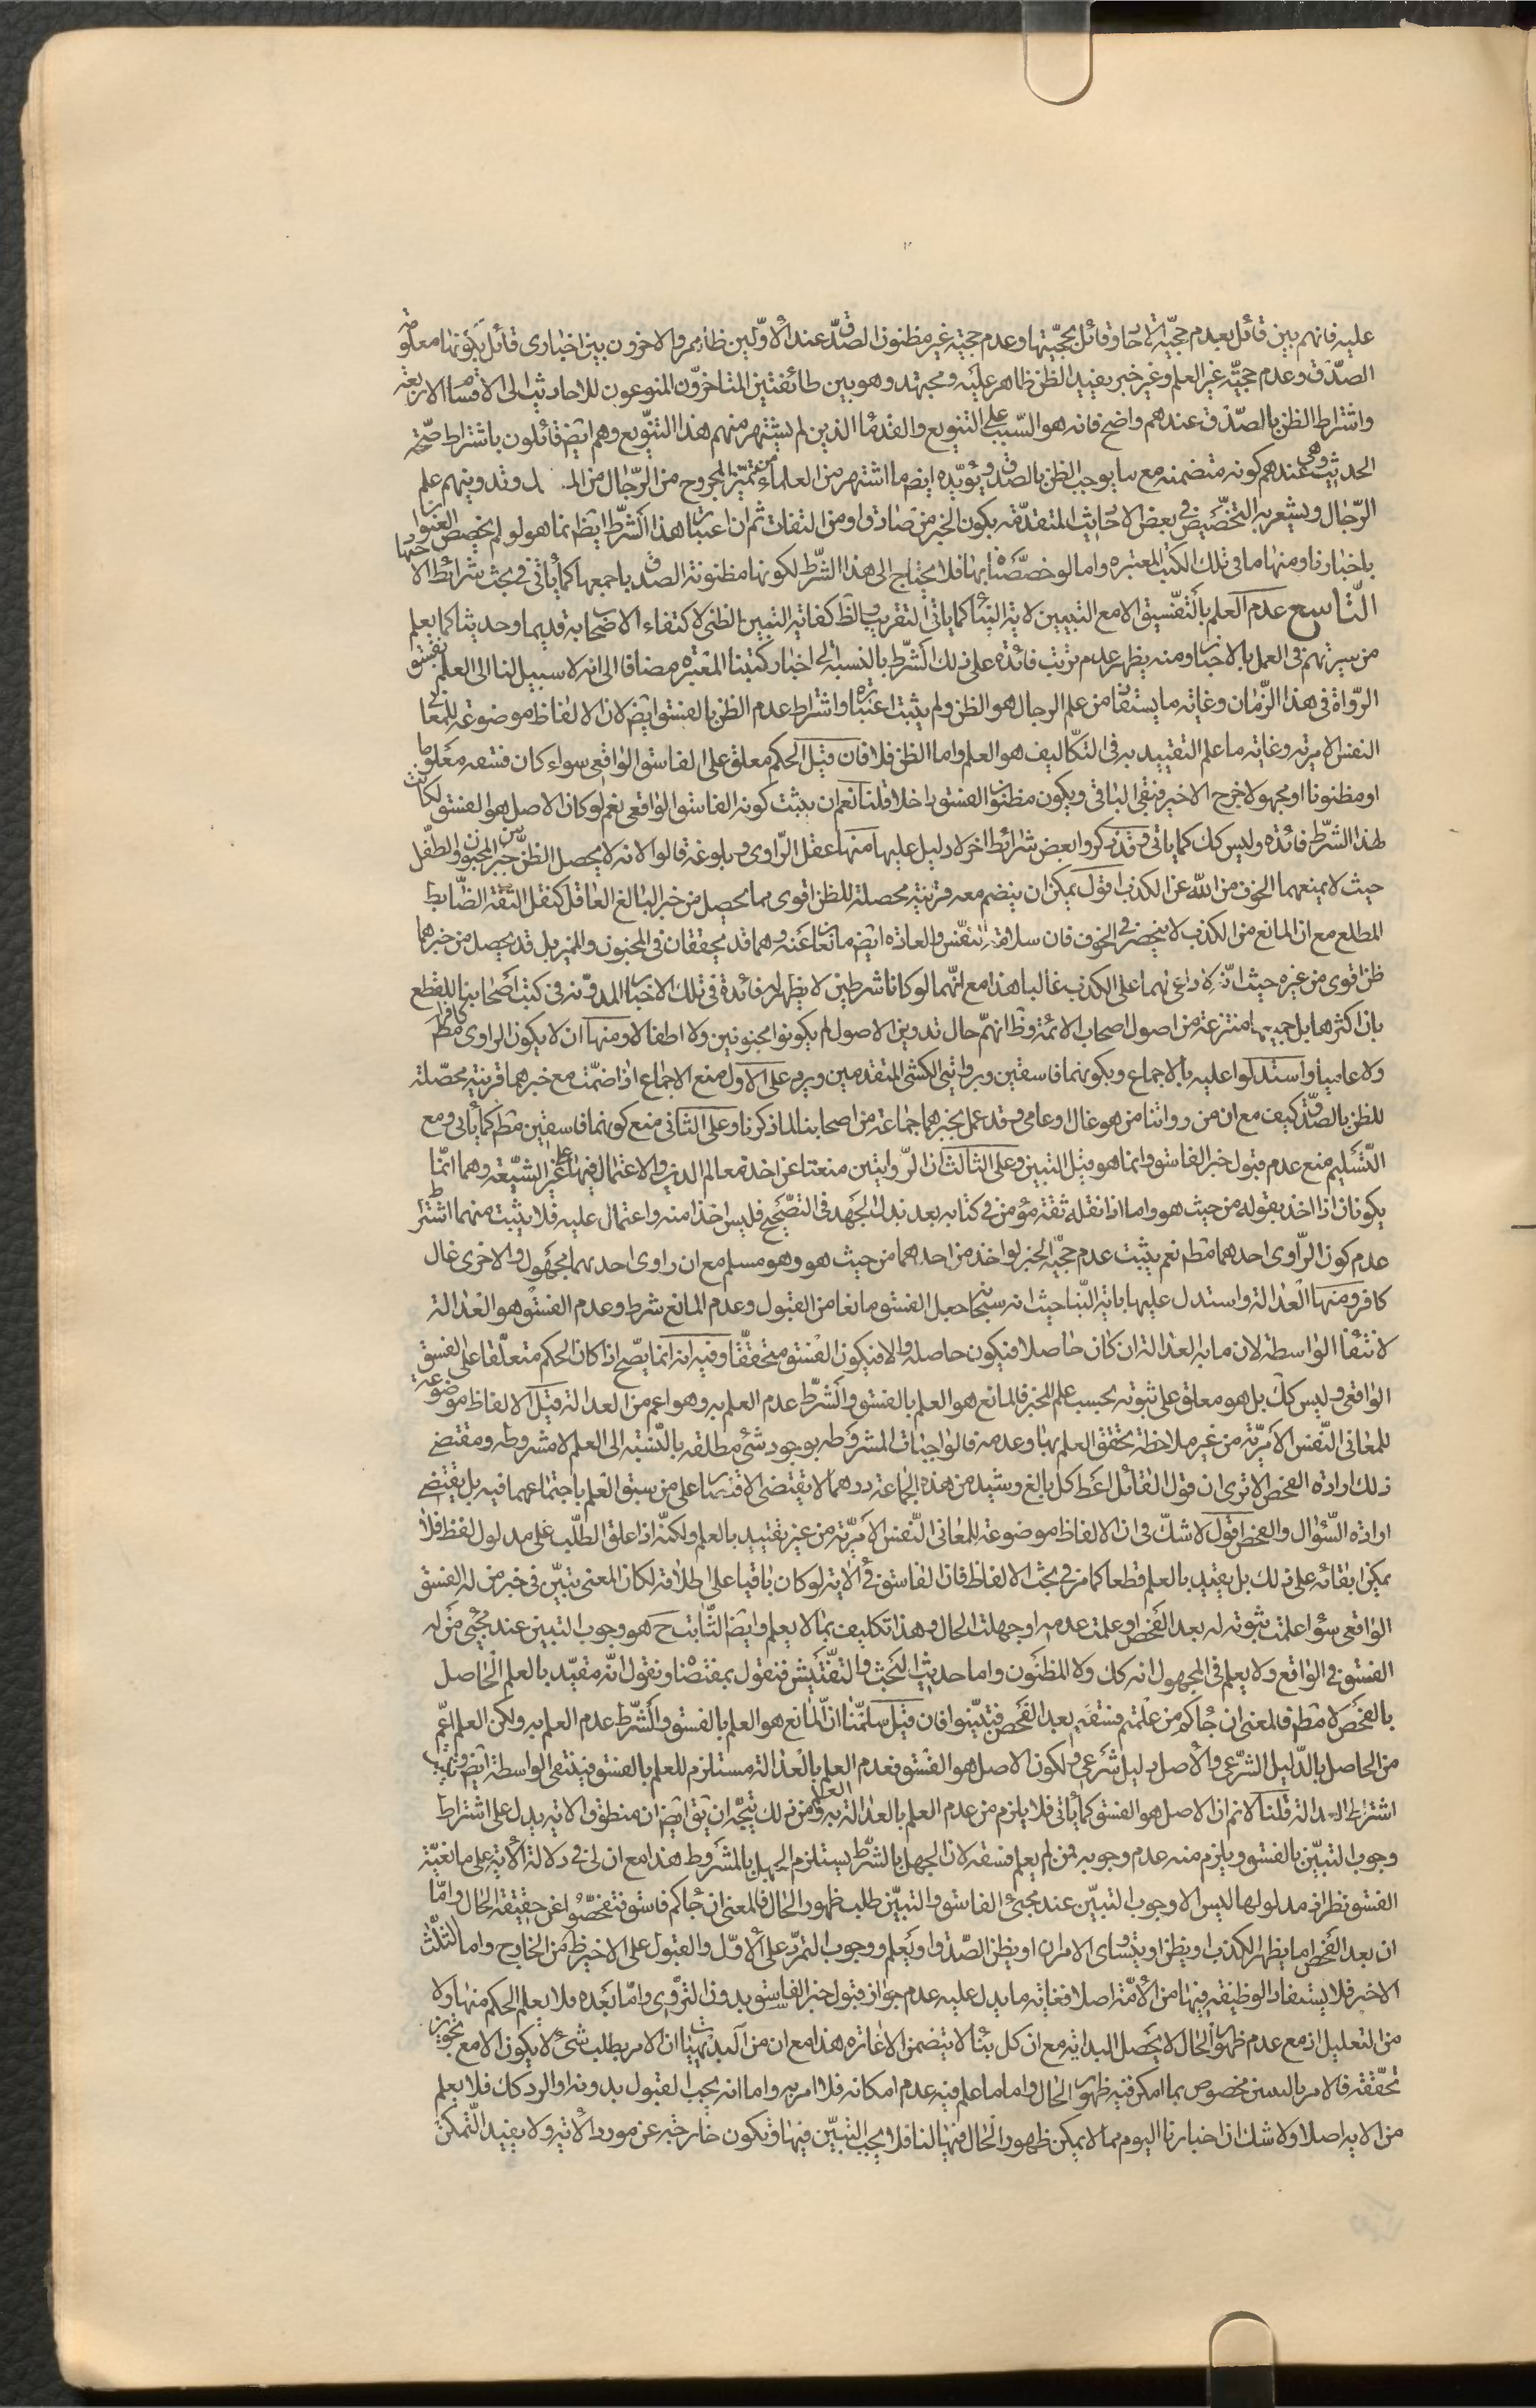 عليه فانهم بين قائل بعدم حجيّة الاحاد وقائل بحجيّتها وعدم حجيّته غير مظنون الصدق عند الاوّلين ظاهر والاخرون بين اخبارى قائل بكونها معلومة
الصّدق وعدم حجيّة غير العلم وغير خبر يفيد الظن ظاهر عليه ومجتهد وهو بين طائفتين المتاخرّون المنوعون للاحاديث الى الاقسام الاربعة
واشتراط الظن بالصّدق عندهم واضح فانه هو السّبب على التنويع والقدما الذين لم يشتهر منهم هذا التنويع وهم ايضا قائلون باشتراط صحّة
الحديث وهى عندهم كونه متضمنه مع ما يوجب الظن بالصدق ويؤيّده ايضا ما اشتهر من العلماء من تميّز المجروح من الرّجال من وتدوينهم علم
الرّجال ويشعر به التخصيص فى بعض الاحاديث المتقدّمه بكون الخبر من صادق او من الثقات ثم ان اعتبار هذا الشّرط ايضا انما هو لو لم يخصص العنوان
باخبارنا ومنها ما فى تلك الكتب المعتبره واما لو خصّصناه بها فلا يحتاج الى هذا الشّرط لكونها مظنونة الصدق باجمعها كما يأتى فى بحث شرائط الاحتجاج
التّاسع عدم العلم بالتّفسيق الا مع التبيين لاية النبأ كما ياتى التقريب والظ كفاية التبيين الظنى لاكتفاء الاصحاب به قديما وحديثا كما يعلم
من سيرتهم فى العمل بالاخبار ومنه يظهر عدم ترتب فائدة على ذلك الشّرط بالنسبة الى اخبار كتبنا المعتبره مضافا الى انه لا سبيل لنا الى العلم بفسق
الرّواة فى هذا الزّمان وغاية ما يستفاد من علم الرجال هو الظن ولم يثبت اعتباره واشتراط عدم الظن بالفسق ايضا لان الالفاظ موضوعة للمعانى
النفس الامريّة وغاية ما علم التقييد به فى التكاليف هو العلم واما الظن فلا فان قيل الحكم معلق على الفاسق الواقعى سواء كان فسقه معلوما
او مظنونا او مجهولا خرج الاخير فبقى الباقى ويكون مظنون الفسق داخلا قلنا نعم ان يثبت كونه الفاسق الواقعى نعم لو كان الاصل هو الفسق لكانت
لهذا الشّرط فائده وليس كك كما ياتى وقد ذكروا بعض شرائط اخر لا دليل عليها منها عقل الرّاوى وبلوغه قالوا لانه لا يحصل الظن من خبر المجنون والطّفل
حيث لا يمنعهما الخوف من الله عن الكذب اقول يمكن ان ينضم معه قرينة محصلة للظن اقوى مما يحصل من خبر البالغ العاقل كنقل الثقة الضّابط
المطلع مع ان المانع من الكذب لا ينحصر فى الخوف فان سلامة النّفس والعاده ايضا مانعان عنه وهما قد يحققان فى المجنون والمميز بل قد يحصل من خبرهما
ظن اقوى من غيره حيث انّه لا داعى لهما على الكذب غالبا هذا مع انّهما لو كانا شرطين لا يظهر له فائدة فى تلك الاخبار المدوّنه فى كتب اصحابنا للقطع
بان اكثرها بل جميعها منتزعة من اصول اصحاب الائمّة وظ انهم حال تدوين الاصول لم يكونوا مجنونين ولا اطفالا ومنها ان لا يكون الراوى كافرا مط
ولا عاميا واستدلوا عليه بالاجماع وبكونهما فاسقين وبروايتى الكشى المتقدمين ويرد على الاول منع الاجماع اذا ضمّت مع خبرهما قرينة محصّلة
للظن بالصدق كيف مع ان من رواتنا من هو غال او عامى وقد عمل بخبرهما جماعة من اصحابنا لما ذكرنا وعلى الثانى منع كونهما فاسقين مط كما يأتى ومع
التّسليم منع عدم قبول خبر الفاسق وانما هو قبل التبين وعلى الثالث ان الرّوايتين منعتا عن اخذ معالم الدين والاعتمال فيهما على غير الشيّعة وهما انّما
يكونان اذا اخذ بقوله من حيث هو واما اذا نقله ثقة مؤمن فى كتابه بعد بذل الجهد فى التصحيح فليس اخذا منه واعتمالا عليه فلا يثبت منهما اشتراط
عدم كون الرّاوى احدهما مط نعم يثبت عدم حجّية الخبر لو اخذ من احدهما من حيث هو وهو مسلم مع ان راوى احديهما مجهول والاخرى غال
كافر ومنها العدالة واستدل عليها باية النّبا حيث انه سبحانه جعل الفسق مانعا من القبول وعدم المانع شرط وعدم الفسق هو العدالة
لانتفاء الواسطة لان ما به العدالة ان كان حاصلا فيكون حاصلة والا فيكون الفسق متحققا وفيه انه انما يصّح اذا كان الحكم متعلّقا على الفسق
الواقعى وليس كك بل هو معلق على ثبوته بحسب علم المخبر فالمانع هو العلم بالفسق والشّرط عدم العلم به وهو اعم من العدالة قيل الالفاظ موضوعة
للمعانى النّفس الامريّة من غير ملاحظة تحقق العلم بها وعدمه فالواجبات المشروطه بوجود شئ مطلقه بالنّسبة الى العلم لا مشروطه ومقتضى
ذلك ارادة الفحص الا ترى ان قول القائل اعط كل بالغ رشيد من هذه الجماعة درهما لا يقتضى الاقتصار على من سبق العلم باجتماعهما فيه بل يقتضى
ارادة السّؤال والفحص اقول لا شكّ فى ان الالفاظ موضوعة للمعانى النّفس الامريّة من غير تقييد بالعلم ولكنّه اذا علق الطلّب على مدلول لفظ فلا
يمكن ابقائه على ذلك بل يقيد بالعلم قطعا كما مر فى بحث الالفاظ فان الفاسق فى الاية لو كان باقيا على اطلاقه لكان المعنى يتبيّن فى خبر من له الفسق
الواقعى سواء علمت ثبوته له بعد الفحص او علمت عدمه او جهلت الحال وهذا تكليف بما لا يعلم وايضا الثّابت ح هو وجوب التبيين عند مجيئ من له
الفسق فى الواقع ولا يعلم فى المجهول انه كك ولا المظنون واما حديث البحث والتفتيش فنقول بمقتضاه ونقول انّه مقيّد بالعلم الحاصل
بالفحص لا مط فالمعنى ان جاءكم من علمتم فسقه بعد الفحص فتبيّنوا فان قيل سلّمنا انّ المانع هو العلم بالفسق والشّرط عدم العلم به ولكن العلم اعّم
من الحاصل بالدّليل الشّرعى والاصل دليل شرعى ولكون الاصل هو الفسق فعدم العلم بالعدالة مستلزم للعلم بالفسق فينتفى الواسطة ايضا ويثبت
اشتراط العدالة قلنا لانم ان الاصل هو الفسق كما يأتى فلا يلزم من عدم العلم بالعدالة العلم به ومن ذلك يتجّه ان يق ايضا ان منطوق الاية يدل على اشتراط
وجوب التبيّن بالفسق ويلزم منه عدم وجوبه فمن لم يعلم فسقه لان الجهل بالشّرط يستلزم الجهل بالمشروط هذا مع ان لى فى دلالة الاية على مانعيّة
الفسق نظرا فى مدلولها ليس الا وجوب التبيّن عند مجيئ الفاسق والتبيّن طلب ظهور الحال فالمعنى ان جاءكم فاسق فتفحّصوا عن حقيقة الحال وامّا
ان بعد الفحص اما يظهر الكذب او يظن او يتساوى الامران او يظن الصّدق او يعلم ووجوب التمرّد على الاوّل والقبول على الاخير ظ من الخارج واما الثلث
الاخر فلا يستفاد الوظيفة فيها من الامّة اصلا فغاية ما يدل عليه عدم جواز قبول خبر الفاسق بدون التروّى وامّا بعده فلا يعلم الحكم منها ولا
من التعليل اذ مع عدم ظهور الحال لا يحصل البداية مع ان كل بنأ لا يتضمن الاغارة هذا مع ان من البديهيات ان الامر بطلب شئ لا يكون الا مع تجويز
تحققه فالامر بالتبين مخصوص بما امكن فيه ظهور الحال واما ما علم فيه عدم امكانه فلا امر به واما انه يجب القبول بدونه او الرد كك فلا يعلم
من الايه اصلا ولا شك ان اخبارنا اليوم مما لا يمكن ظهور الحال فيها لنا فلا يجب التبيّن فيها وتكون خارجة عن مورد الاية ولا يفيد التّمكن